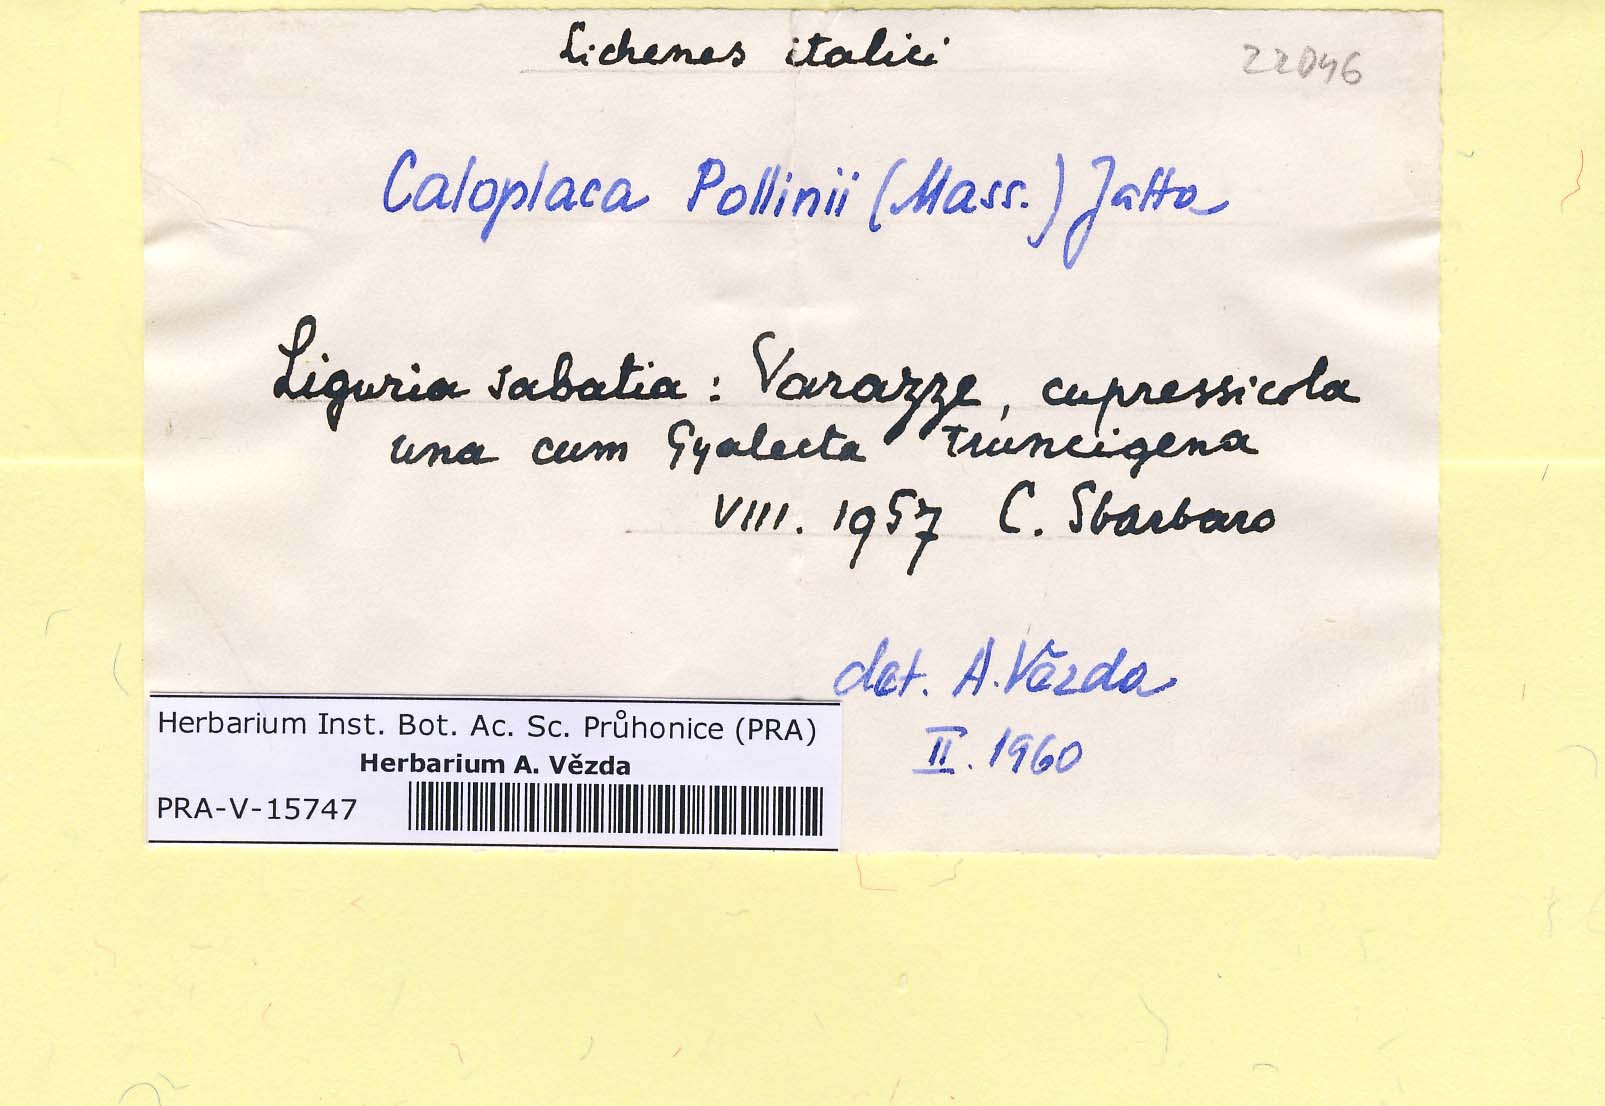 Lichenes italici
22046
Caloplaca Pollinii (Mass.) Jatta
Liguria sabatia: Varazze, cupressicola
una cum Gyalecta truncigena
VIII. 1957 C. Sbarbaro
det. A. Vězda
II. 1960
Herbarium Inst. Bot. Ac. Sc. Průhonice (PRA)
Herbarium A. Vězda
PRA-V-15747